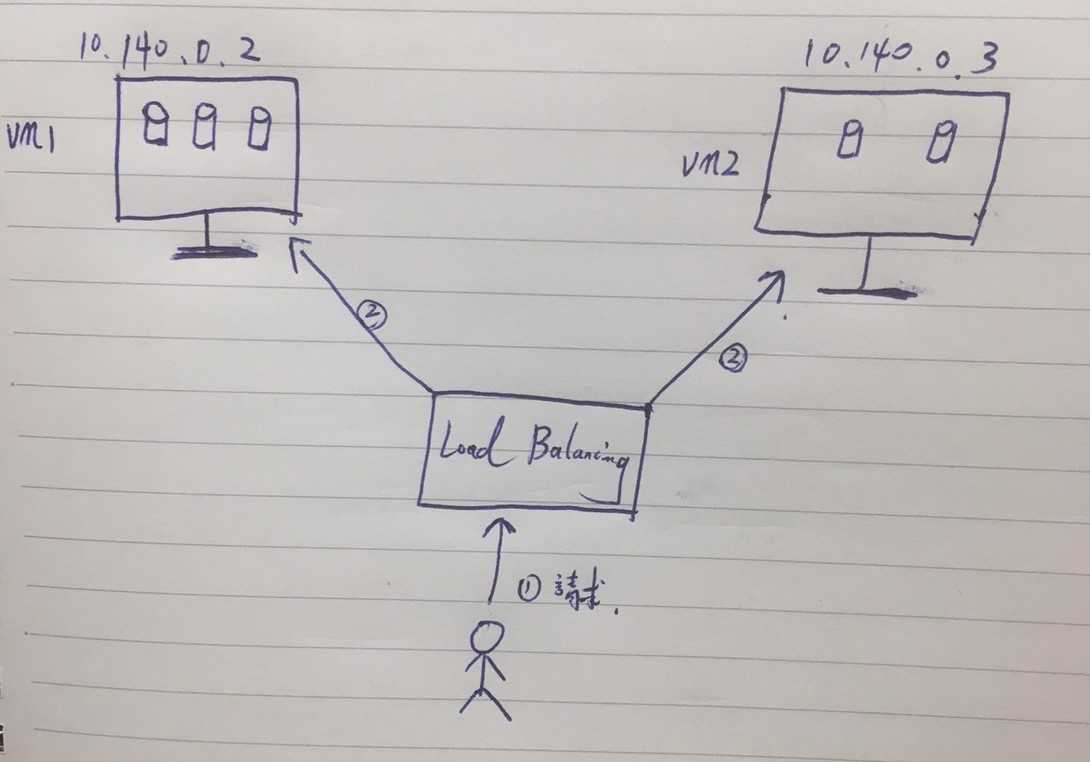 10.140.0.2
10.140.0.3
VM1
VM2
②
②
Load Balancing
① 請求.